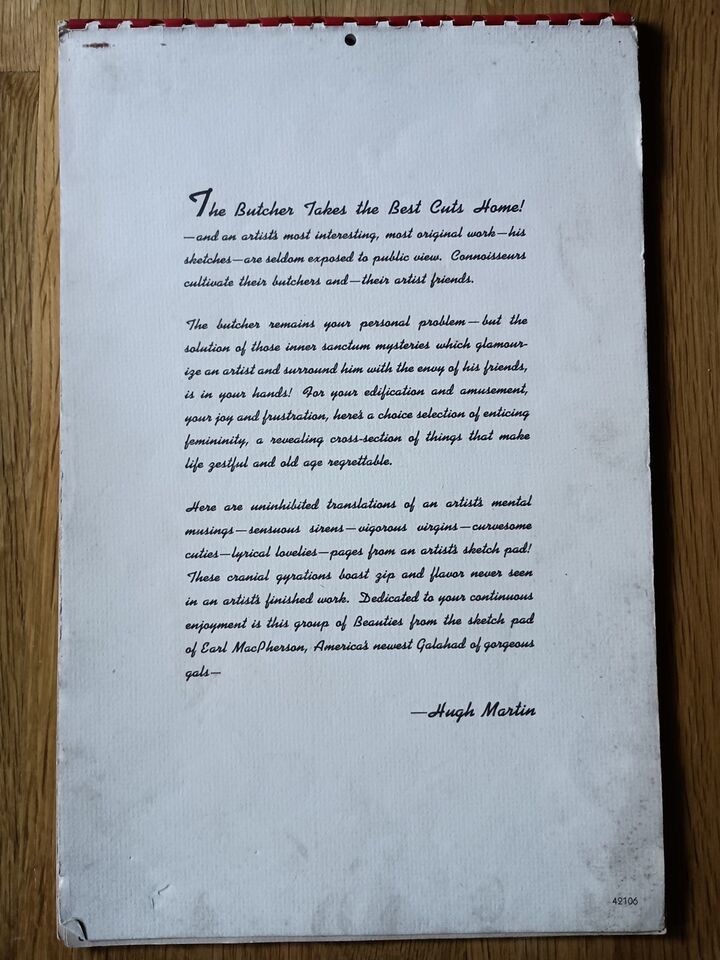 The Butcher Takes the Best Cuts Home!
—and an artist's most interesting, most original work—his
sketches—are seldom exposed to public view. Connoisseurs
cultivate their butchers and—their artist friends.
The butcher remains your personal problem—but the
solution of those inner sanctum mysteries which glamour-
ize an artist and surround him with the envy of his friends,
is in your hands! For your edification and amusement,
your joy and frustration, here's a choice selection of enticing
femininity, a revealing cross-section of things that make
life zestful and old age regrettable.
Here are uninhibited translations of an artist's mental
musings—sensuous sirens—vigorous virgins—curvesome
cuties—lyrical lovelies—pages from an artist's sketch pad!
These cranial gyrations boast zip and flavor never seen
in an artist's finished work. Dedicated to your continuous
enjoyment is this group of Beauties from the sketch pad
of Earl MacPherson, America's newest Galahad of gorgeous
gals—
—Hugh Martin
42106